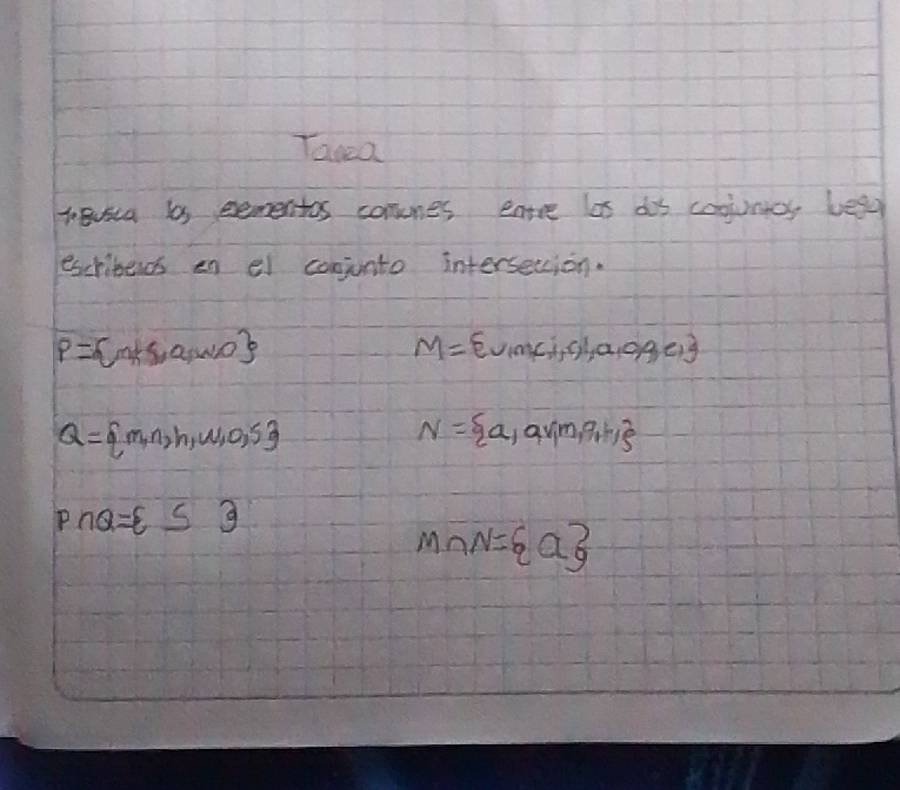 Tarea
1. Busca los elementos comunes entre los dos conjuntos luego
escribelos en el conjunto intersección.
P={ a, w, o}
M={ }
Q={m, n, h, w, o, s}
N={a, }
P∩Q={ S }
M∩N={ a }